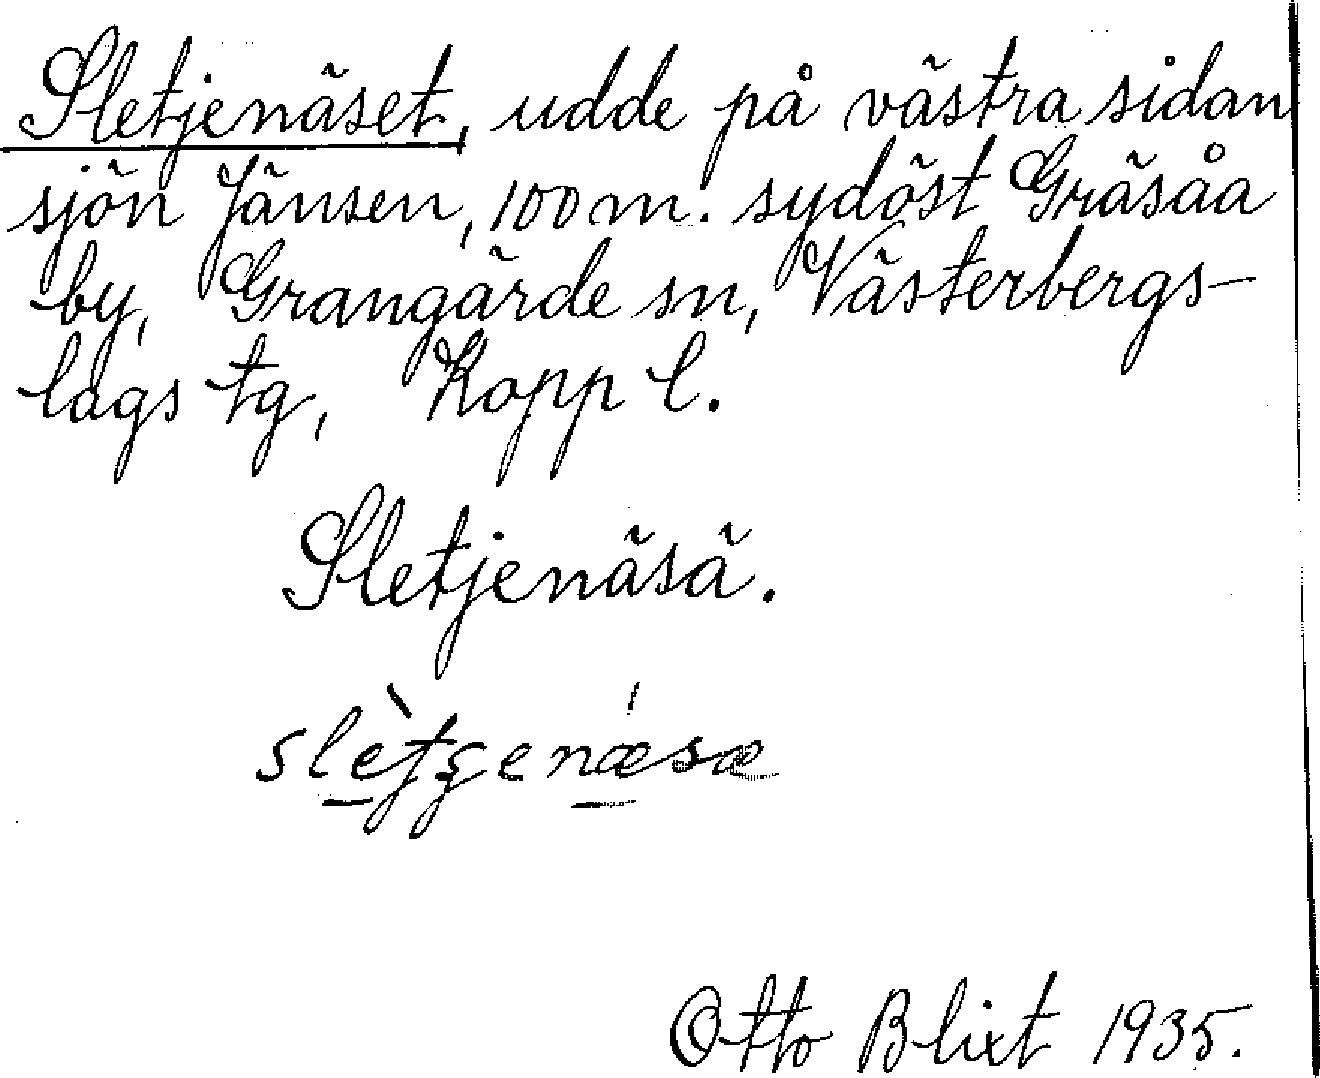 Sletjenäset, udde på västra sidan
sjön Jänsen, 100 m. sydöst Gräsåa
by, Grangärde sn, Västerbergs-
lags tg, Kopp l.
Sletjenäsä.
Otto Blixt 1935.